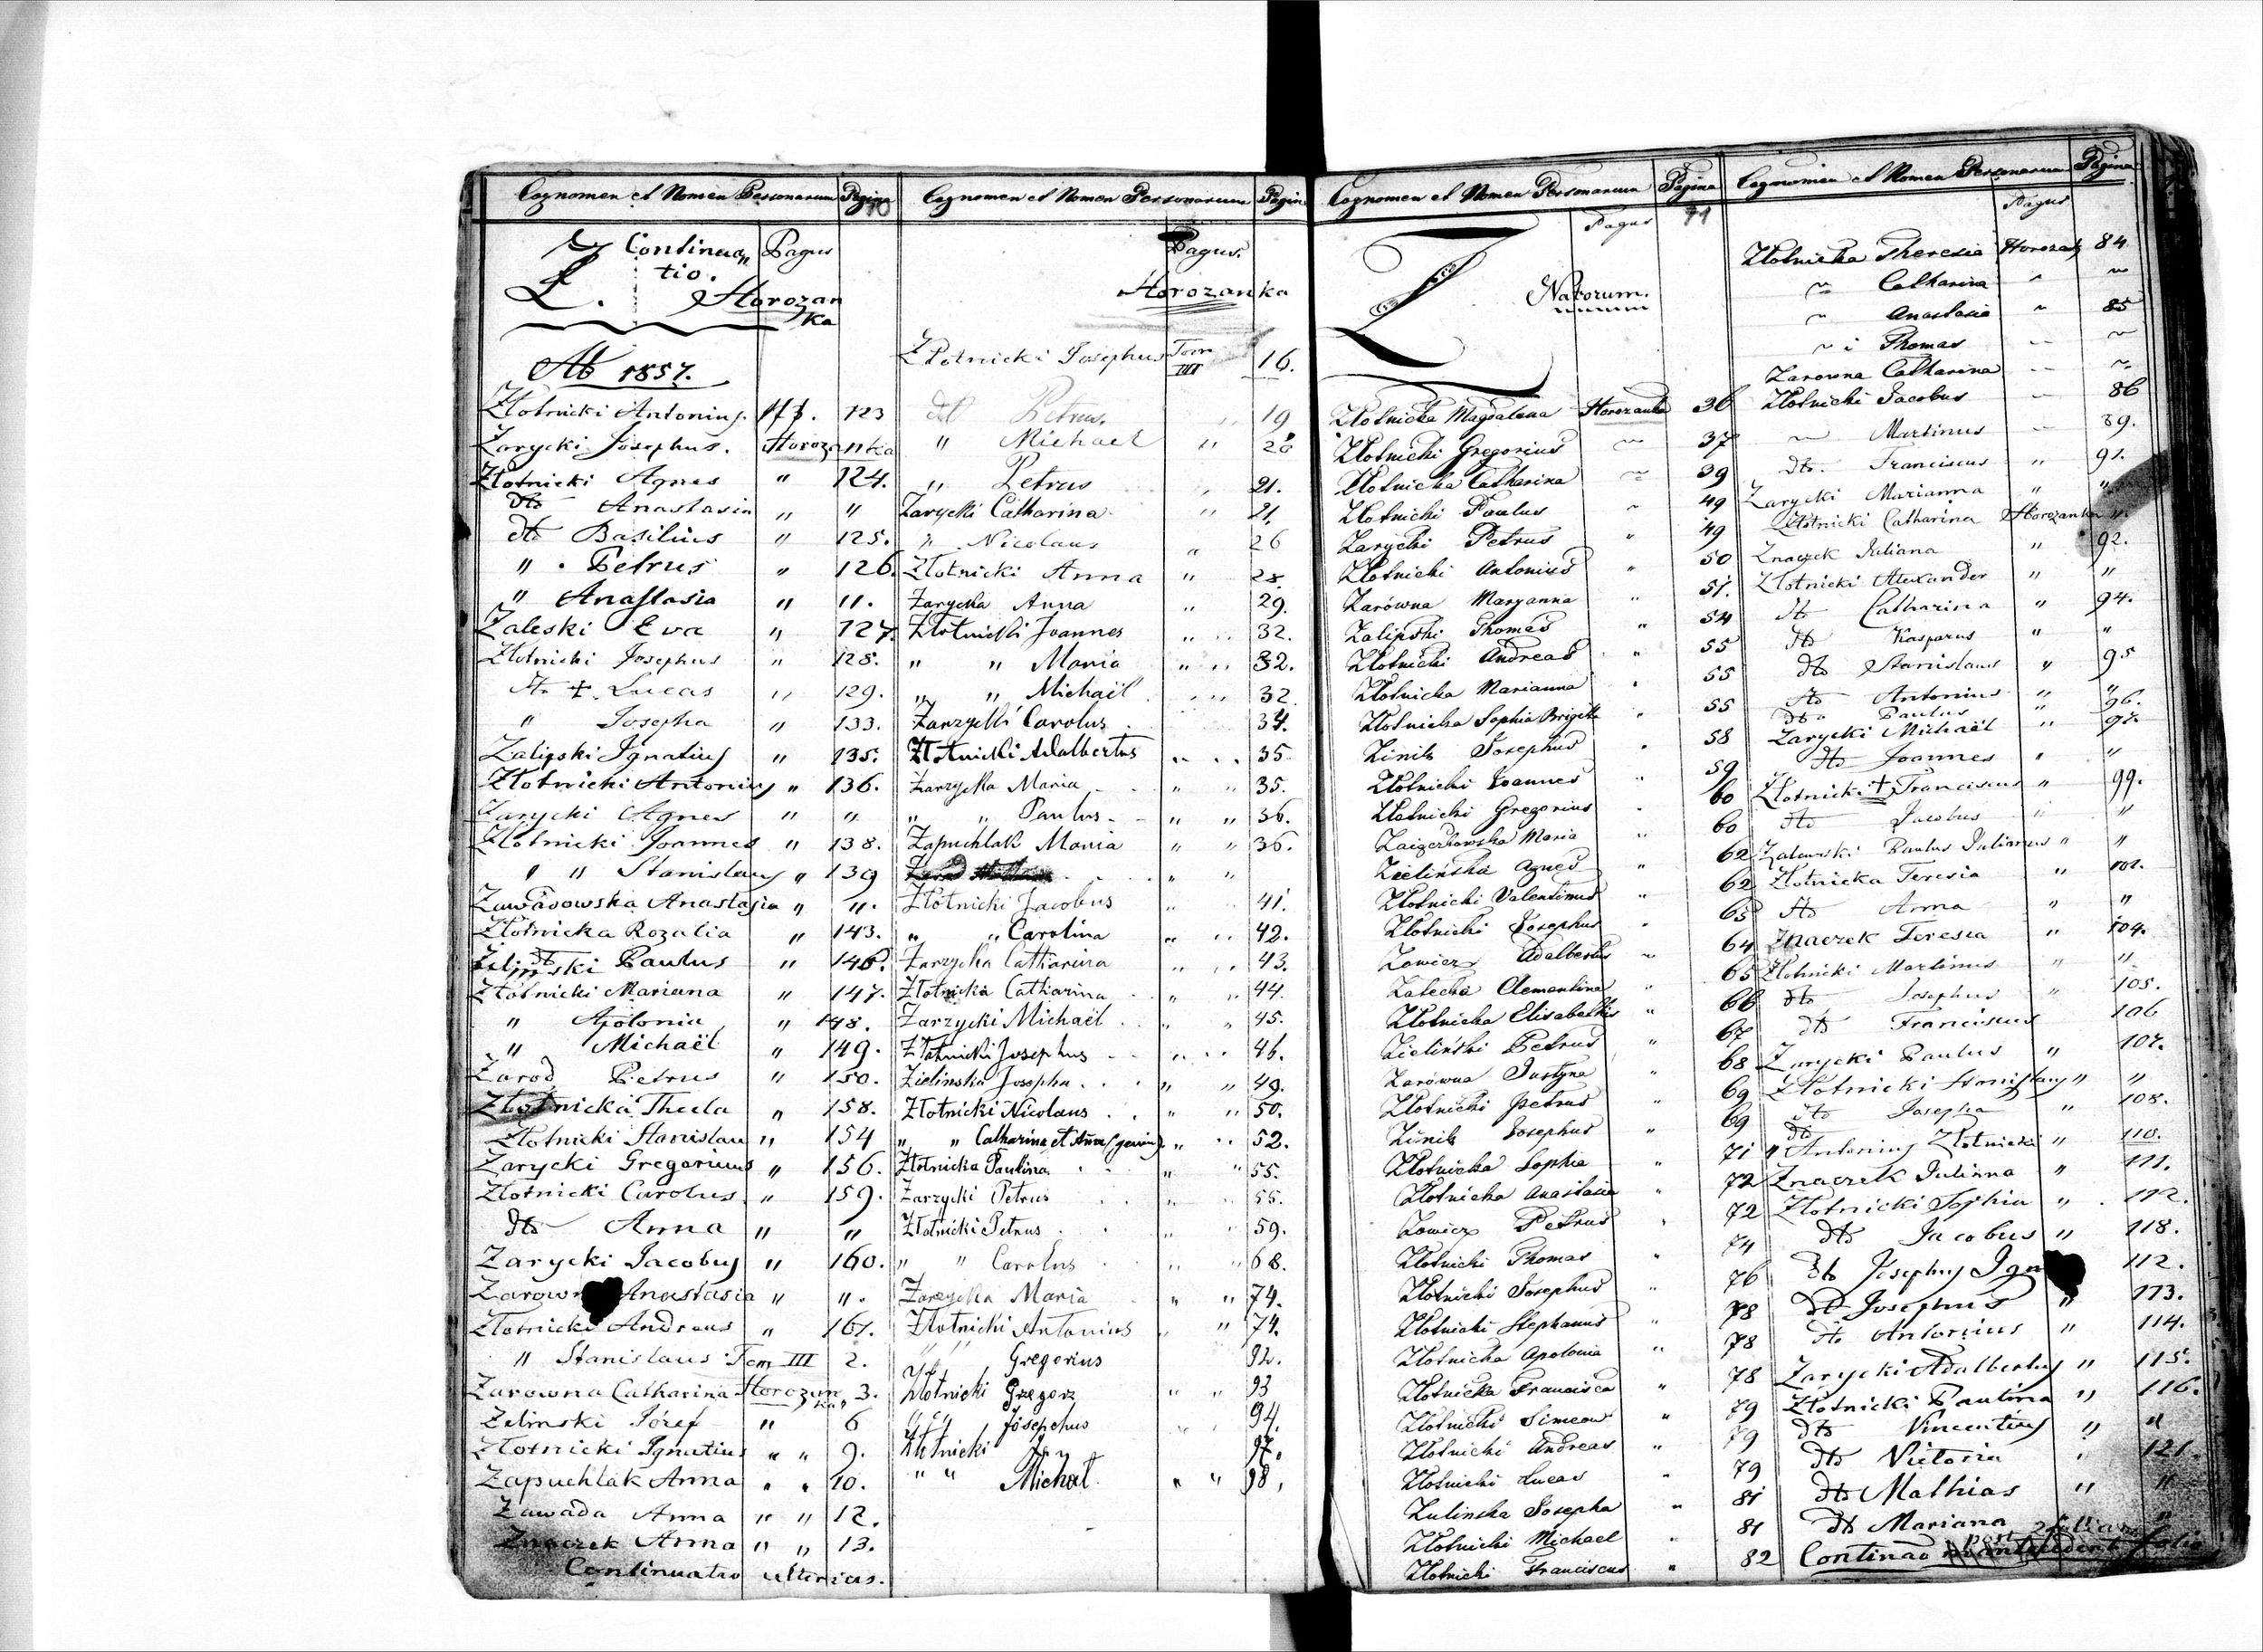 Cognomen et Nomen Personarum Pagina
70
Z Continua
tio. Pagus
Horozan
ka
Ab 1857.
Złotnicki Antonius. 123
Zarycki Josephus. Horozanka
Złotnicki Agnes " 124.
dto Anastasia " "
dto Basilius " 125.
" Petrus " 126.
" Anastasia " 11.
Zaleski Eva " 127.
Złotnicki Josephus " 128.
dto + Lucas " 129.
" Josepha " 133.
Zalipski Ignatius " 135.
Złotnicki Antonius " 136.
Zarycki Agnes " "
Złotnicki Joannes " 138.
" " Stanislaus " 139
Zawadowska Anastasia " ".
Złotnicka Rozalia " 143.
dto
Zilinski Paulus " 146.
Złotnicki Mariana " 147.
" Apolonia " 148.
" Michaël " 149.
Zarod Petrus " 150.
Złotnicka Thecla " 158.
Złotnicki Stanislau " 154
Zarycki Gregorius " 156.
Złotnicki Carolus " 159.
dto Anna " "
Zarycki Jacobus " 160.
Anastasia " ".
Złotnicki Andreas " 161.
" Stanislaus Tom III 2.
Zarowna Catharina Horozan
ka 3.
Zelinski Józef " 6
Złotnicki Ignatius " " 9.
Zapuchlak Anna " " 10.
Zawada Anna " " 12.
Znaczek Anna " " 13.
Continuatio ulterius.
Cognomen et Nomen Personarum Pagin
Pagus.
Horozanka
Złotnicki Josephus Tom
III 16.
dto Petrus. " 19
" Michael " 20
" Petrus " 21.
Zarycki Catharina " 21.
" Nicolaus " 26
Złotnicki Anna " 28.
Zarycka Anna " 29.
Złotnicki Joannes " " 32.
" " Maria " " 32.
" " Michaël " " 32
Zarzycki Carolus 34.
Złotnicki Adalbertus " " 35
Zarzycka Maria " " 35.
" " Paulus " " 36.
Zapuchlak Maria " " 36.
" "
Złotnicki Jacobus " " 41.
" " Carolina " " 42.
Zarzycka Catharina " " 43.
Złotnicka Catharina " " 44.
Zarzycki Michaël " " 45.
Złotnicki Josephus " " 46.
Zielinska Josepha " " 49.
Złotnicki Nicolaus " " 50.
" " Catharina et Anna (gemin) " " 52.
Złotnicka Paulina " " 55.
Zarzycki Petrus " " 55.
Złotnicki Petrus " " 59.
" " Carolus " " 68.
Zarzycka Maria " " 74.
Złotnicki Antonius " " 74.
" " Gregorius 92.
Złotnicki Grzegorz " " 93
" " Jósephus " " 94.
Złotnicki Jan 97.
" " Michał " " 98.
Cognomen et Nomen Personarum Pagina
71
Pagus
Z
Natorum.
Złotnicka Magdalena Horozanka 36
Złotnicki Gregorius ~ 37
Złotnicka Catharina ~ 39
Złotnicki Paulus ~ 49
Zarycki Petrus " 49
Złotnicki Antonius " 50
Zarówna Maryanna " 51.
Zalipski Thomas " 54
Złotnicki Andreas " 55
Złotnicka Marianna " 55
Złotnicka Sophia Brigitta " 55
Zinik Josephus " 58
Złotnicki Joannes " 59
Złotnicki Gregorius " 60
Maria " 60
Zielińska Agnes " 62
Złotnicki Valentinus " 62
Złotnicki Josephus " 63
Zowicz Adalbertus ~ 64
Zalecka Clementina " 65
Złotnicka Elisabethis " 66
Zieliński Petrus " 67
Zarówna Justyna " 68
Złotnicki Petrus " 69
Zinik Josephus " 69
Złotnicka Sophia " 71
Złotnicka Anastasia " 72
Zowicz Petrus " 72
Złotnicki Thomas " 74
Złotnicki Josephus " 76
Złotnicki Stephanus " 78
Złotnicka Apolonia " 78
Złotnicka Francisca " 78
Złotnicki Simeon " 79
Złotnicki Andreas " 79
Złotnicki Lucas " 79
Zulinska Josepha " 81
Złotnicki Michael " 81
Złotnicki Franciscus " 82
Cognomen et Nomen Personarum Pagina
Pagus
Złotnicka Theresia 84
~ Catharina " ~
~ Anastasia ~ 85
~ Thomas ~ ~
Zarowna Catharina ~ ~
Złotnicki Jacobus ~ 86
~ Martinus ~ 89.
dto. Franciscus " 91.
Zarycki Marianna " "
Złotnicki Catharina Horozanka ".
Znaczek Juliana " 92.
Złotnicki Alexander " "
dto Catharina " 94.
dto Kasparus " "
dto Stanislaus " 95
dto Antonius " "
dto Paulus " 96.
Zarycki Michaël " 97.
dto Joannes " "
Złotnicki + Franciscus " 99.
dto Jacobus " "
Zalewski Paulus Julianus " "
Złotnicka Teresia " 101.
dto Anna " "
Znaczek Teresia " 104.
Złotnicki Martinus " "
dto Josephus " 105.
dto Franciscus 106
Zarycki Paulus " 107.
Złotnicki Stanislaus " "
dto Josepha " 108.
dto
" Antonius Złotnicki " 110.
Znaczek Julianna " 111.
Złotnicki Sophia " 112.
dto Jacobus " 118.
dto Josephus Ign 112.
dto Josephus " 113.
dto Antonius " 114.
Zarycki Adalbertus " 115.
Złotnicki Paulina " 116.
dto Vincentius " "
dto Victoria " 121.
dto Mathias " "
dto Mariana "
Continuao folio